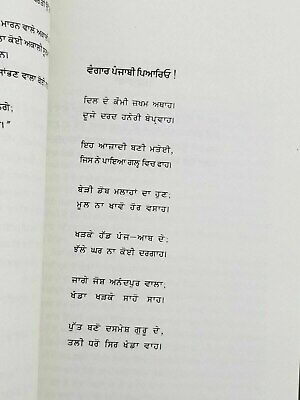 ਮਾਰਨ ਵਾਲੇ ਅਕਾਲੀ
ਨਾ ਕੋਈ ਅਕਾਲੀ
ਵਾਲਾ ਕੋਈ
ਵੰਗਾਰ ਪੰਜਾਬੀ ਪਿਆਰਿਓ !
ਦਿਲ ਦੇ ਕੌਮੀ ਜ਼ਖ਼ਮ ਅਥਾਹ।
ਦੂਜੇ ਦਰਦ ਹਨੇਰੀ ਬੇਪ੍ਰਵਾਹ।
ਇਹ ਆਜ਼ਾਦੀ ਬਣੀ ਮਤੇਈ,
ਜਿਸ ਨੇ ਪਾਇਆ ਗਲ੍ਹ ਵਿਚ ਫਾਹ।
ਬੇੜੀ ਡੋਬ ਮਲਾਹਾਂ ਦਾ ਹੁਣ;
ਮੂਲ ਨਾ ਖਾਵੋ ਹੋਰ ਵਸਾਹ।
ਖੜਕੇ ਹੱਡ ਪੰਜ–ਆਬ ਦੇ;
ਝੱਲੇ ਘਰ ਨਾ ਕੋਈ ਦਰਗਾਹ।
ਜਾਗੇ ਜੋਸ਼ ਅਨੰਦਪੁਰ ਵਾਲਾ;
ਖੰਡਾ ਖੜਕੇ ਸਾਹੋ ਸਾਹ।
ਪੁੱਤ ਬਣੋ ਦਸਮੇਸ਼ ਗੁਰੂ ਦੇ,
ਤਲੀ ਧਰੋ ਸਿਰ ਖੰਡਾ ਵਾਹ।